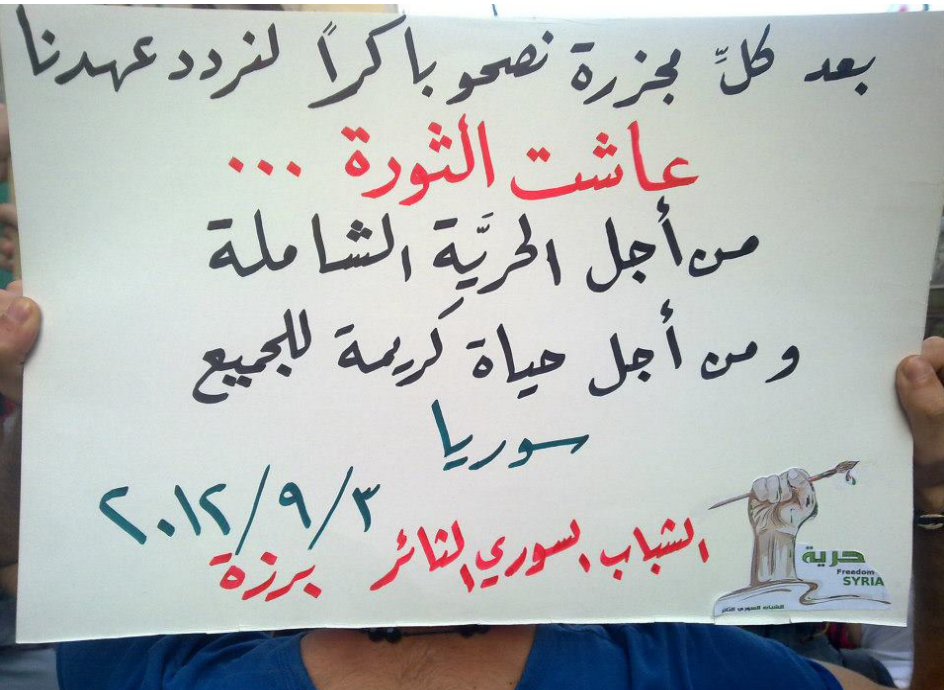 بعد كلِّ مجزرة نصحو باكراً لنردد عهدنا
عاشت الثورة ...
من أجل الحريَّة الشاملة
و من أجل حياة كَريمة للجميع
سوريا
٢٠١٢/٩/٣
الشباب السوري الثائر برزة
حرية
Freedom
SYRIA
الشباب السوري الثائر